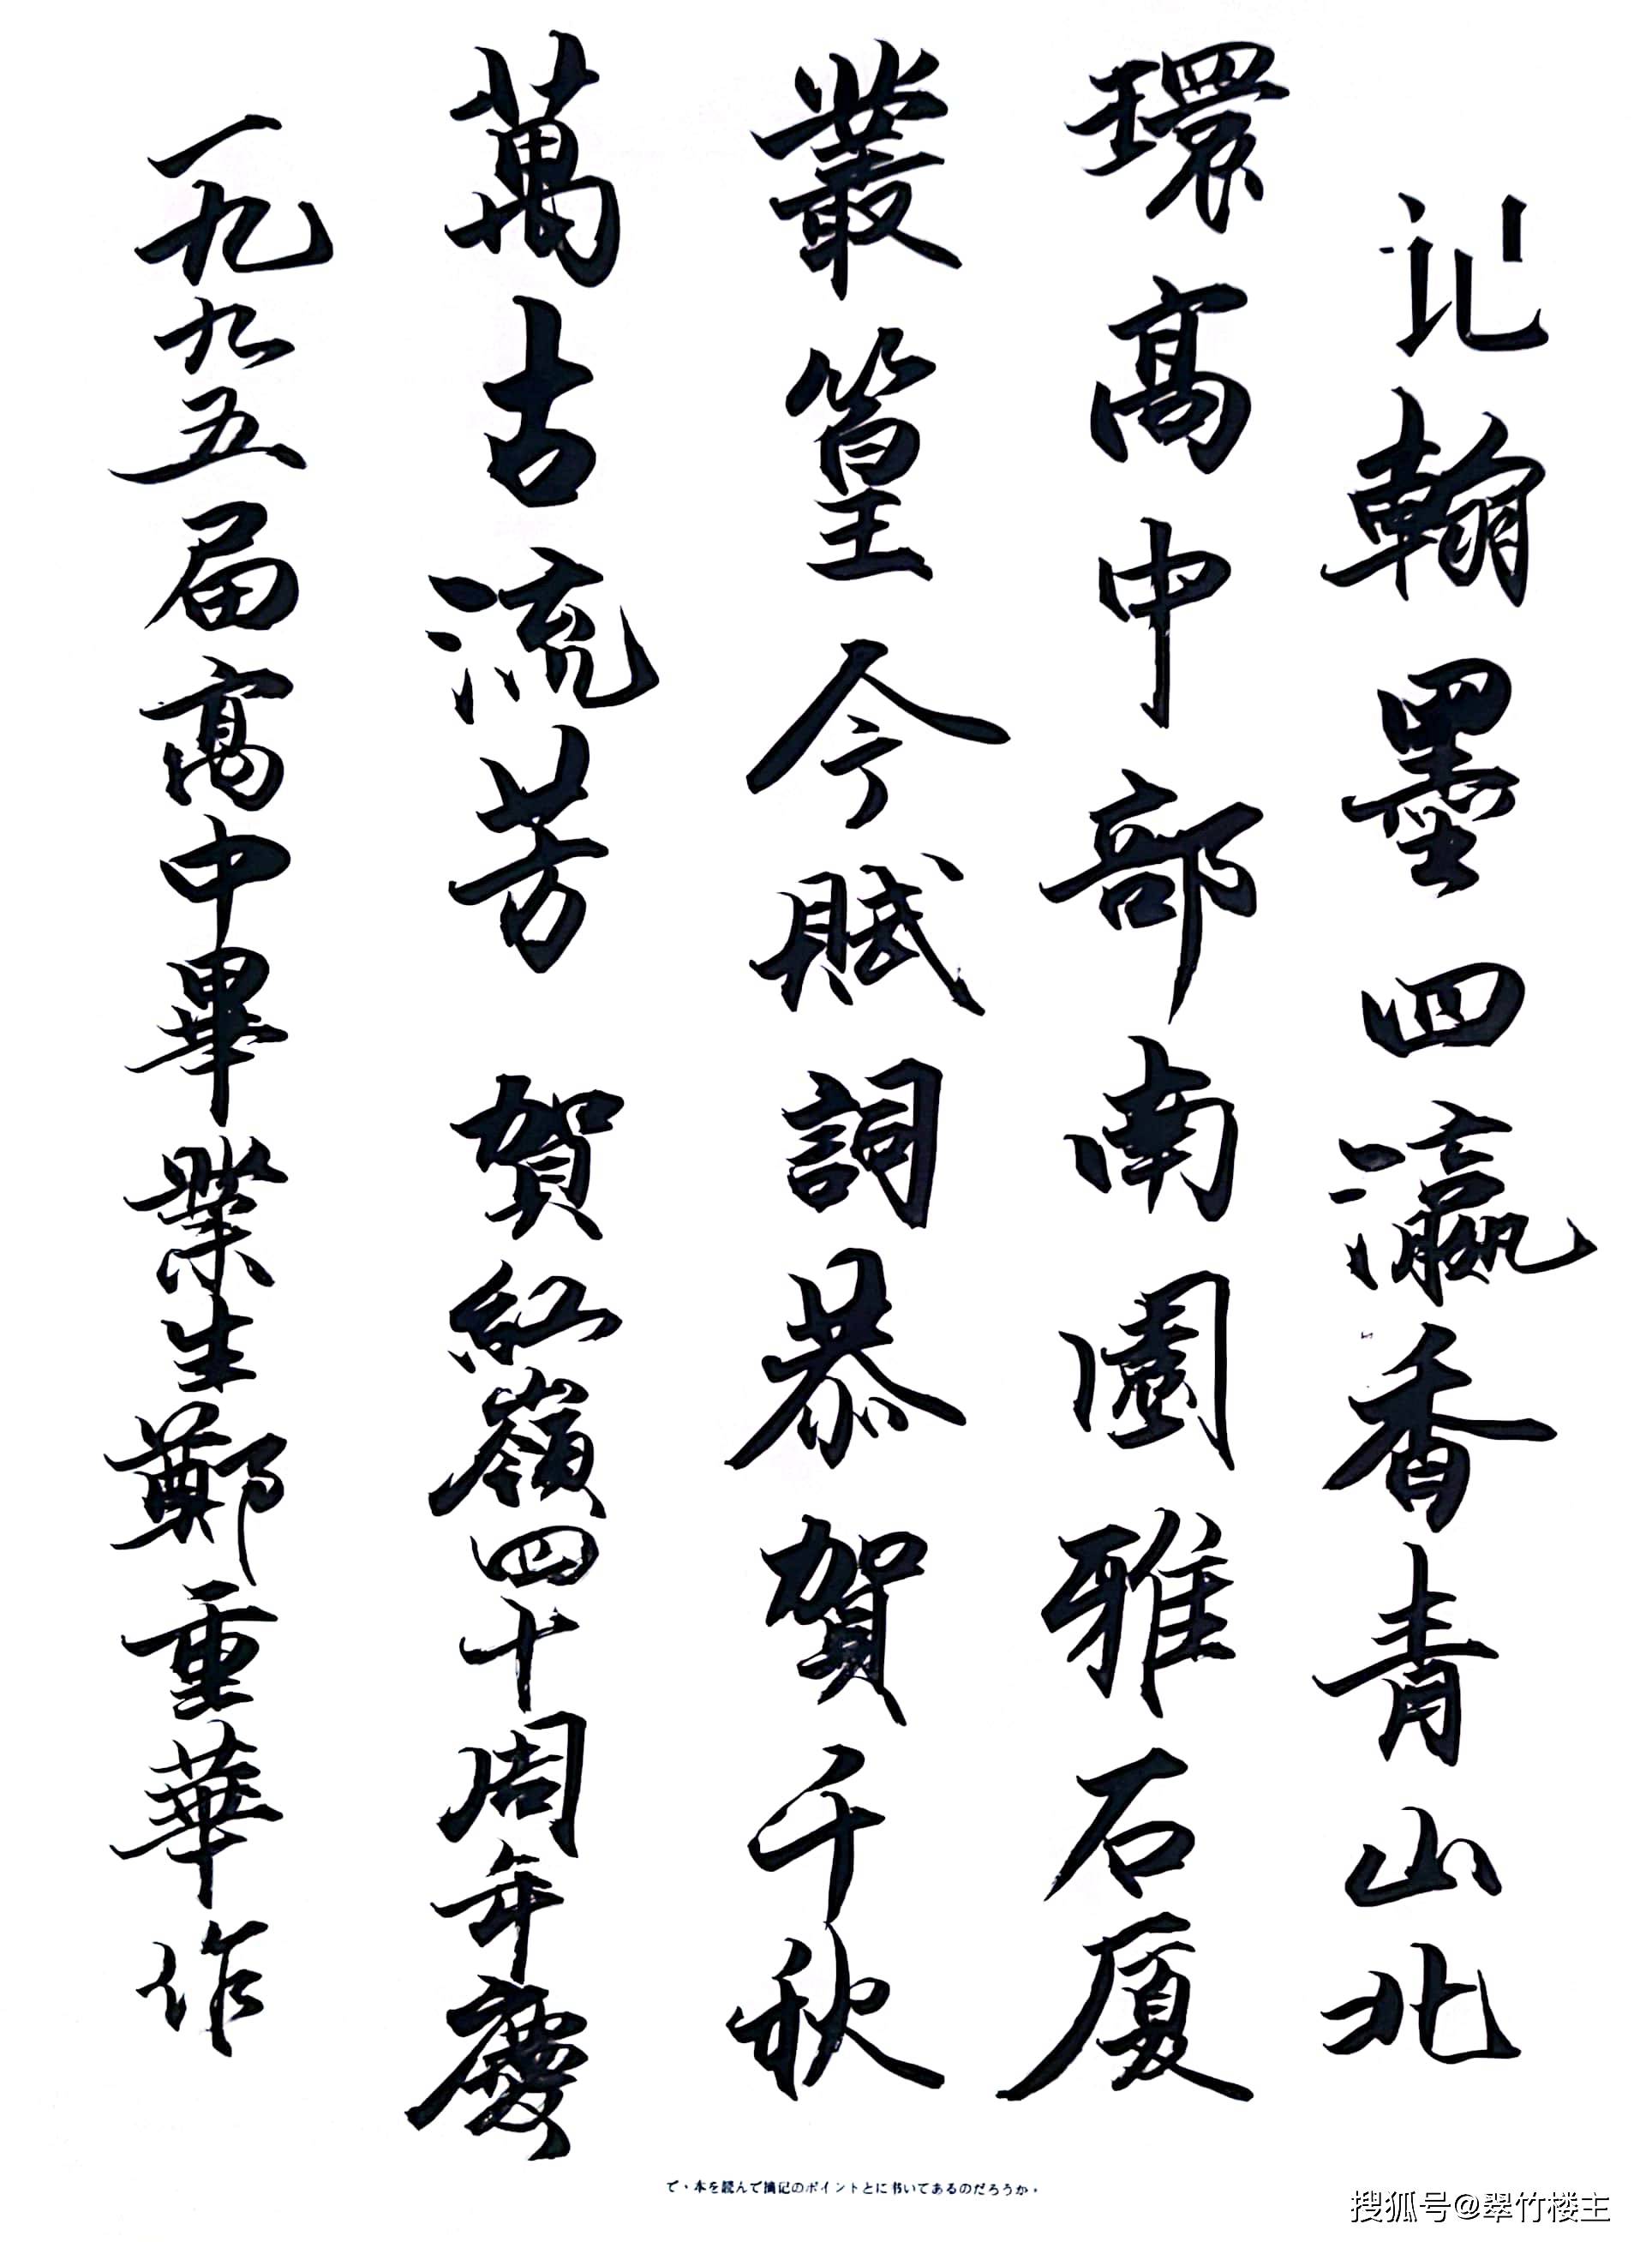 记翰墨四瀛香青山北
環高中部南園雅石厦
叢篁今賦詞恭賀千秋
萬古流芳 賀紅嶺四十周年慶
一九九五届高中畢業生鄭重華作
で、本を読んで摘記のポイントとに书いてあるのだろうか。
搜狐号@翠竹楼主